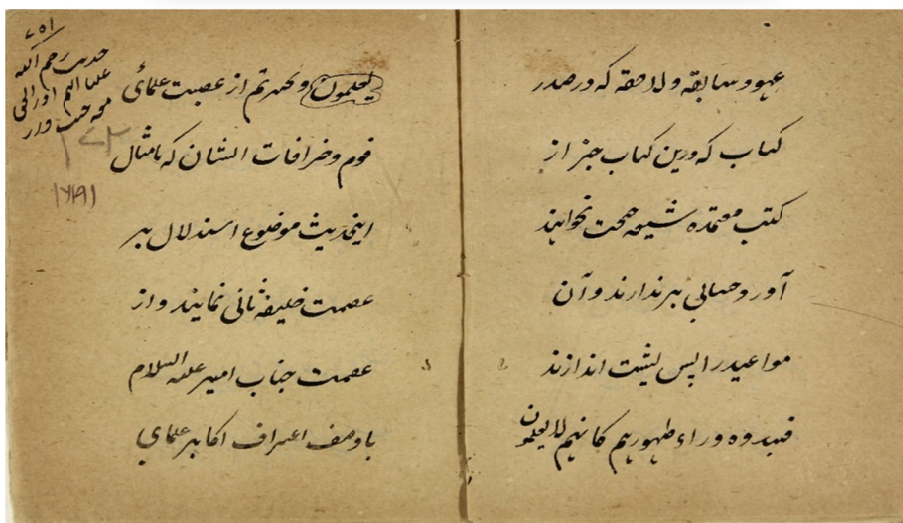 عهود سابقه ولاحقه که در صدر
کتاب که درین کتاب جز از
کتب معتمده شیعه حجت نخواهند
آورد حسابی برندارند و آن
مواعید را پس پشت اندازند
فنبذوه وراء ظهورهم کانهم لا یعلمون
یعلمون و محیرتم از عصبت علمائ
قوم و خرافات ایشان که بامثال
اینحدیث موضوع استدلال بر
عصمت خلیفه ثانی نمایند و از
عصمت جناب امیر علیه السلام
با وصف اعتراف اکابر علمای
حدیث رحم الله
علیا اللهم ادر الحق
معه حیث دار